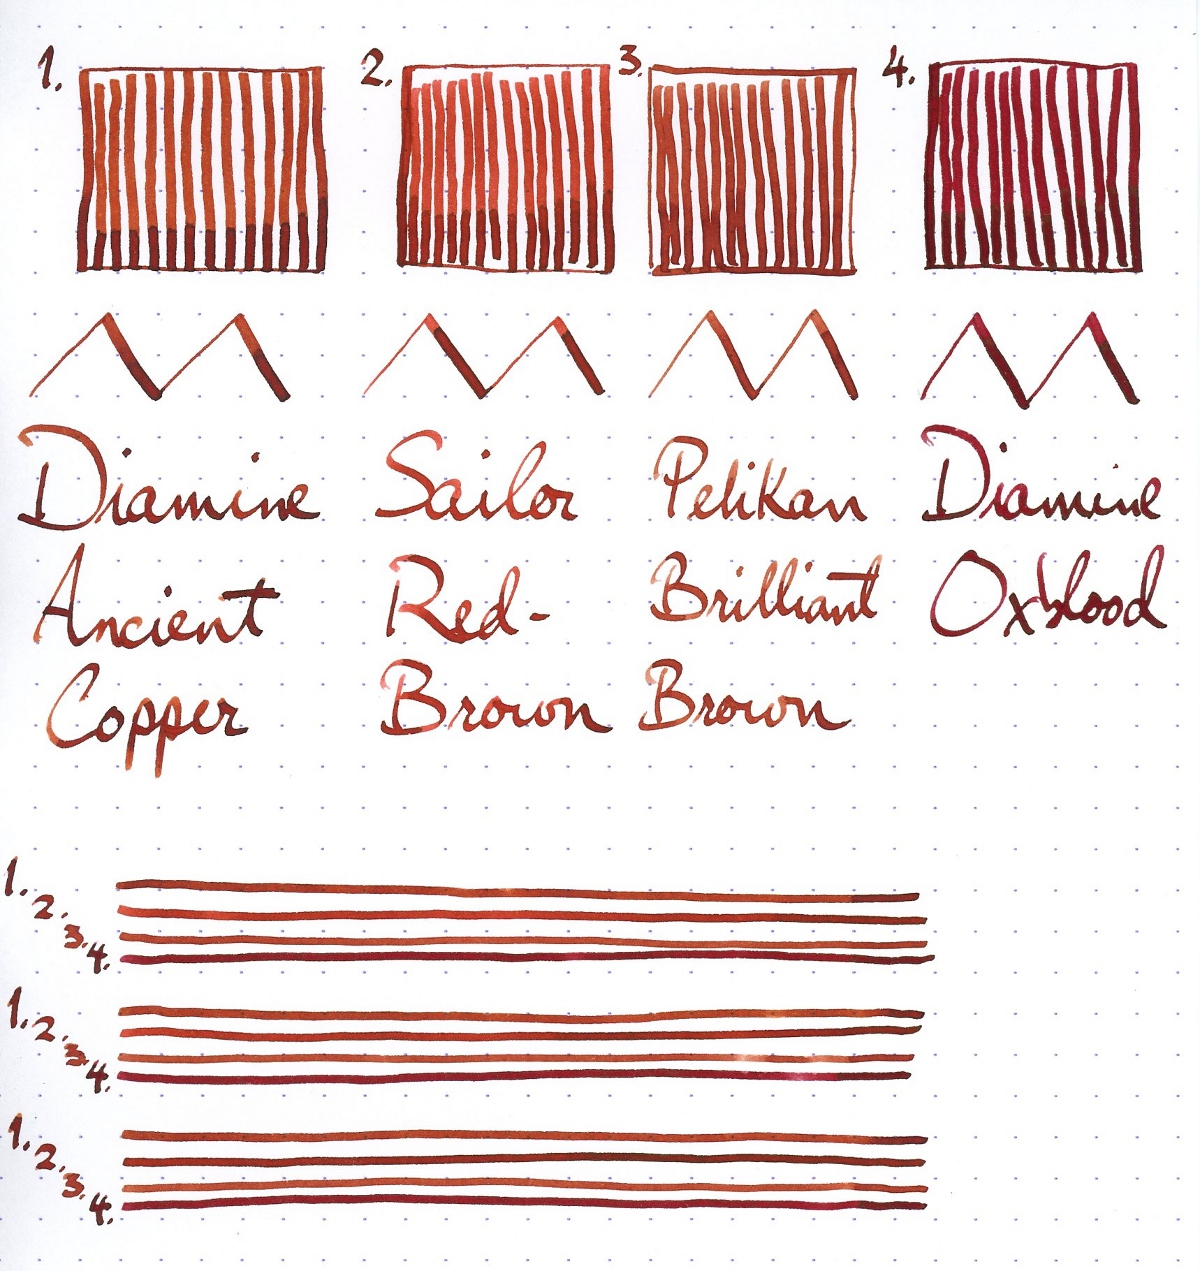 1. 2. 3. 4.
Diamine Sailor Pelikan Diamine
Ancient Red- Brilliant Oxblood
Copper Brown Brown
1.
2.
3.
4.
1.
2.
3.
4.
1.
2.
3.
4.